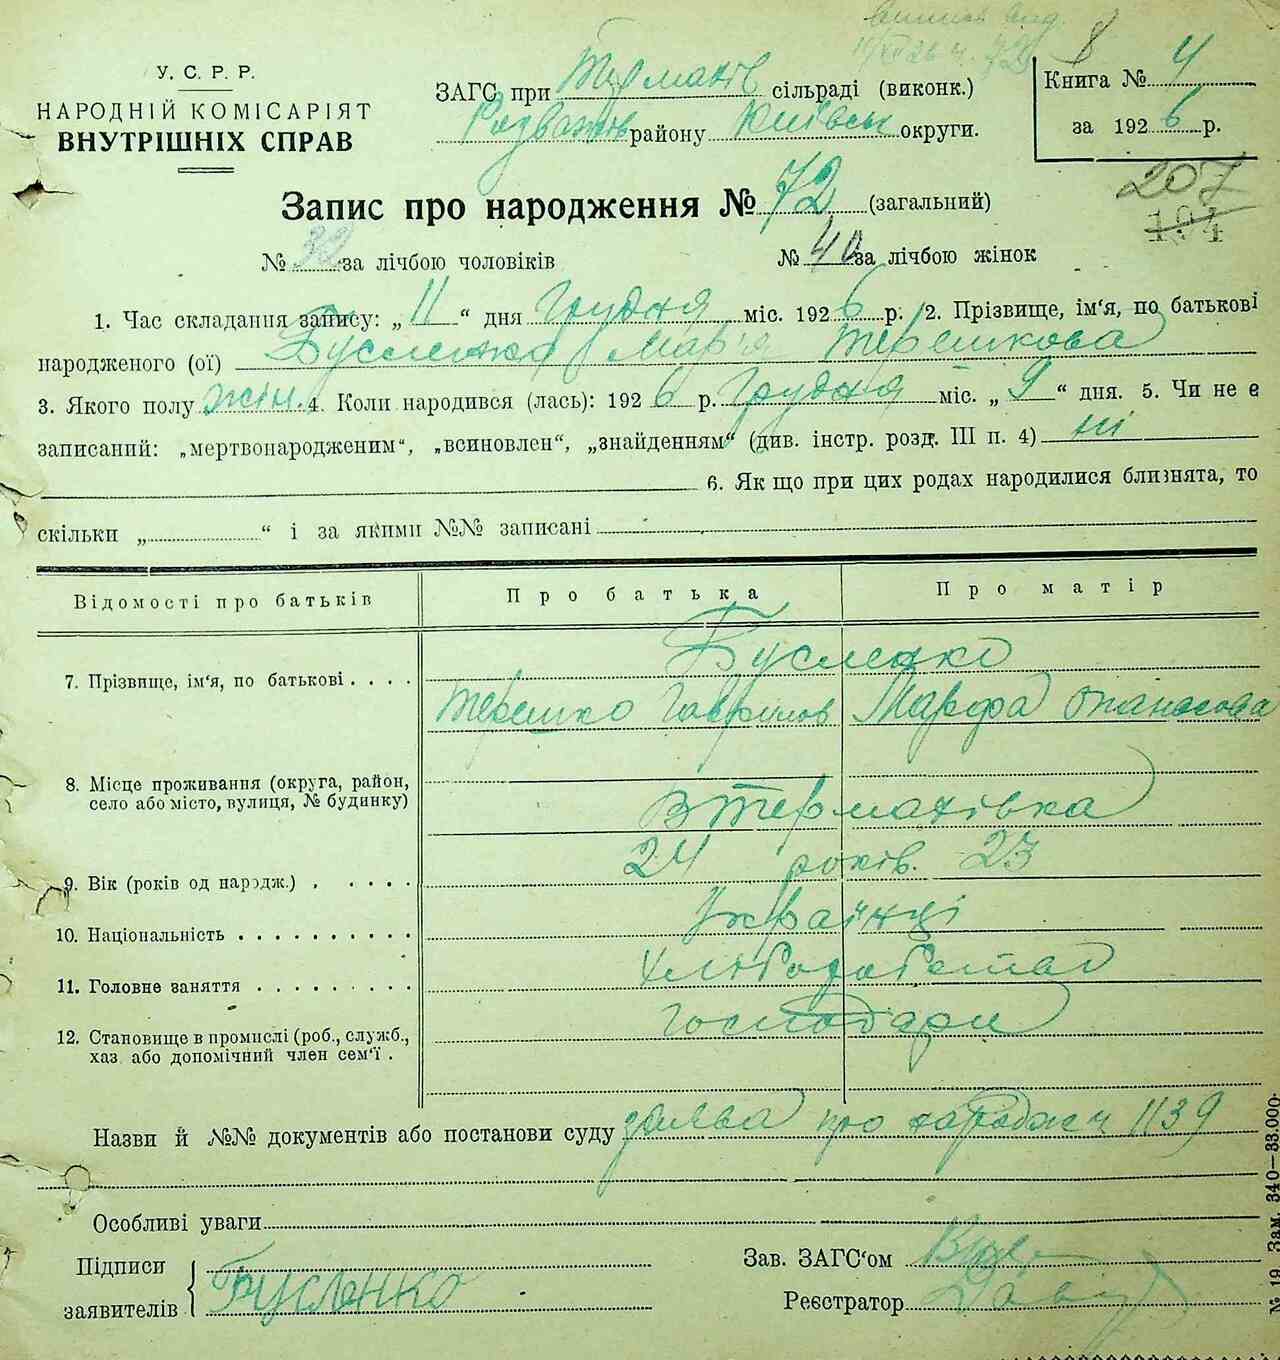 У. С. Р. Р.
НАРОДНІЙ КОМІСАРІЯТ
ВНУТРІШНІХ СПРАВ
ЗАГС при Термахів сільраді (виконк.)
Розважів району Київськ округи.
8
Книга № 4
за 1926 р.
207
194
Запис про народження № 72 (загальний)
№ 32 за лічбою чоловіків № 40 за лічбою жінок
1. Час складання запису: „11“ дня Грудня міс. 1926 р. 2. Прізвище, ім‘я, по батькові
народженого (ої) Бусленко Мар'я Терешкова
3. Якого полу жін. 4. Коли народився (лась): 1926 р. Грудня міс. „9“ дня. 5. Чи не є
записаний: „мертвонародженим“, „всиновлен“, „знайденням“ (див. інстр. розд. III п. 4) ні
6. Як що при цих родах народилися близнята, то
скільки „ “ і за якими №№ записані
Відомості про батьків Про батька Про матір
Бусленко
7. Прізвище, ім‘я, по батькові . . . . Терешко Гаврилов Марфа Опанасова
8. Місце проживання (округа, район,
село або місто, вулиця, № будинку) в Термахівка
9. Вік (років од народж.) . . . . . 24 років. 23
10. Національність . . . . . . . . . . Українці
11. Головне заняття . . . . . . . . . Хліборобство
12. Становище в промислі (роб., служб., Господари
хаз. або допомічний член сем‘ї .
Назви й №№ документів або постанови суду заява про народж ч 1139
Особливі уваги
Підписи
заявителів Бусленко
Зав. ЗАГС‘ом
Реєстратор
№ 19 Зам. 340—83.000